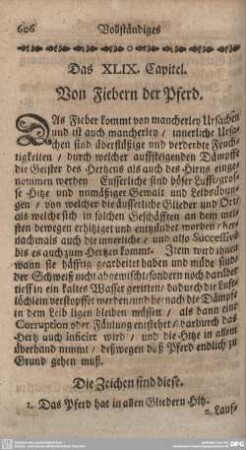 606 Vollständiges
Das XLIX. Capitel.
Von Fiebern der Pferd.
DAs Fieber kommt von mancherley Ursachen
und ist auch mancherley / innerliche Ursa-
chen sind überflüßige und verderbte Feuch-
tigkeiten / durch welcher auffsteigenden Dämpffe
die Geister des Hertzens als auch des Hirns einge-
nommen werden Eusserliche sind böser Lufft/ gros-
se Hitz und unmäßiger Gewalt und Leibsübun-
gen / von welcher die äusserliche Glieder und Ort/
als welche sich in solchen Geschäfften an dem mei-
sten bewegen erhitziget und entzündet worden / her-
nachmals auch die innerliche / und also Successivè
bis es auch zum Hertzen kommt. Item wird ihnen
wann sie häfftig gearbeitet haben und müde sind/
der Schweiß nicht abgewischt/ sondern noch darüber
tieff in ein kaltes Wasser geritten/ dadurch die Lufft-
löchlein verstopffet werden/ und hernach die Dämpffe
in dem Leib ligen bleiben müssen / als dann eine
Corruption oder Fäulung entstehet / dardurch das
Hertz auch inficirt wird / und die Hitz in allem
überhand nimmt / deßwegen das Pferd endlich zu
Grund gehen muß.
Die Zeichen sind diese.
1. Das Pferd hat in allen Gliedern Hitz.
2. Lauf=